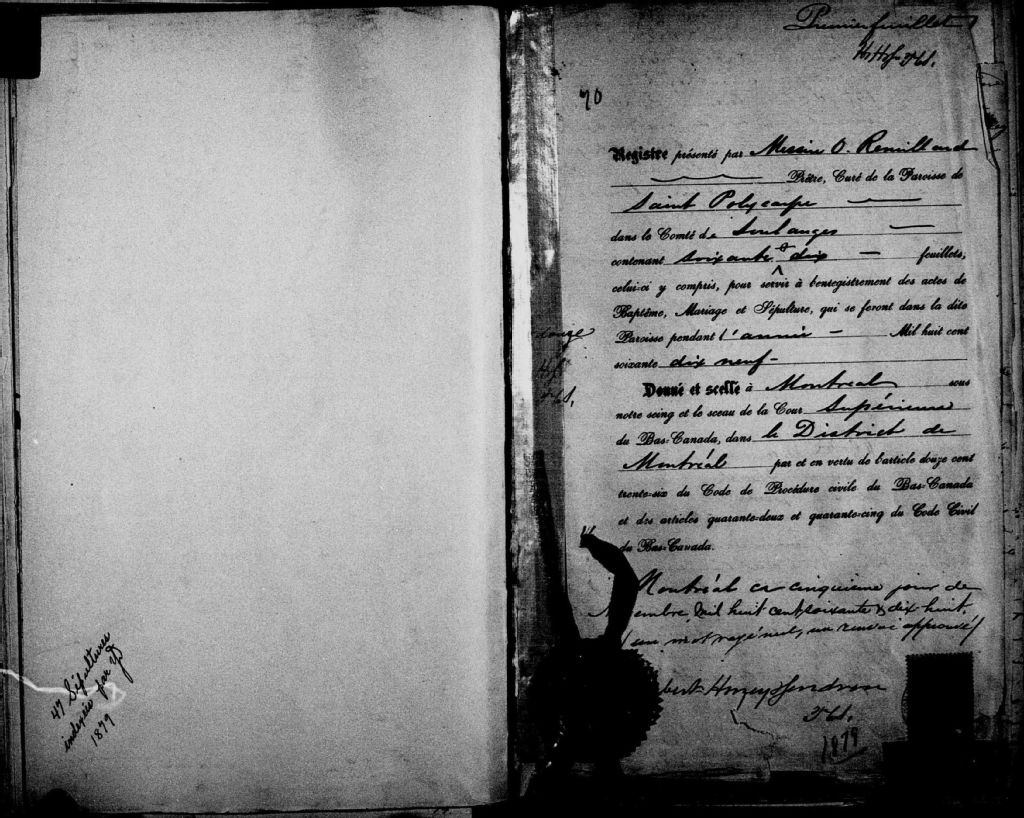 47 Sépultures
indexées par
1879
Premier feuillet
70
Registre présenté par Messire O. Remillard
Prêtre, Curé de la Paroisse de
Saint Polycarpe
dans le Comté de Soulanges
contenant soixante & dix feuillets,
celui-ci y compris, pour servir à l'enregistrement des actes de
Baptême, Mariage et Sépulture, qui se feront dans la dite
Paroisse pendant l'année Mil huit cent
soixante dix neuf
Donné et scellé à Montreal sous
notre seing et le sceau de la Cour Supérieure
du Bas-Canada, dans le District de
Montréal par et en vertu de l'article douze cent
trente-six du Code de Procédure civile du Bas-Canada
et des articles quarante-deux et quarante-cinq du Code Civil
du Bas-Canada.
Montréal ce cinquieme jour de
embre, mil huit cent soixante & dix huit.
(un mot rayé nul, un renvoi approuvé)
1879